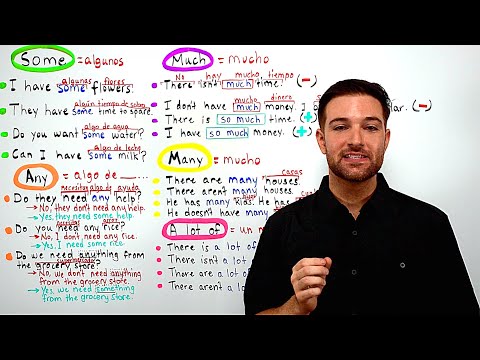 Some = algunos
algunas flores
I have some flowers.
algún tiempo de sobra
They have some time to spare.
algo de agua
Do you want some water?
algo de leche
Can I have some milk?
Any = algo de
necesitar algo de ayuda
Do they need any help?
→ No, they don't need any help.
→ Yes, they need some help.
arroz
Do you need any rice?
→ No, I don't need any rice.
→ Yes, I need some rice.
Do we need anything from
supermercado
the grocery store?
→ No, we don't need anything
from the grocery store.
→ Yes, we need something
from the grocery store.
Much = mucho
No hay mucho tiempo
There isn't much time. (-)
mucho dinero
I don't have much money. I
lar. (-)
There is so much time. (+)
I have so much money. (+)
Many = mucho
casas
There are many houses.
There aren't many houses
He has many kids. He has
He doesn't have many
A lot of = un
There is a lot of
There isn't a lot of
There are a lot of
There aren't a lot